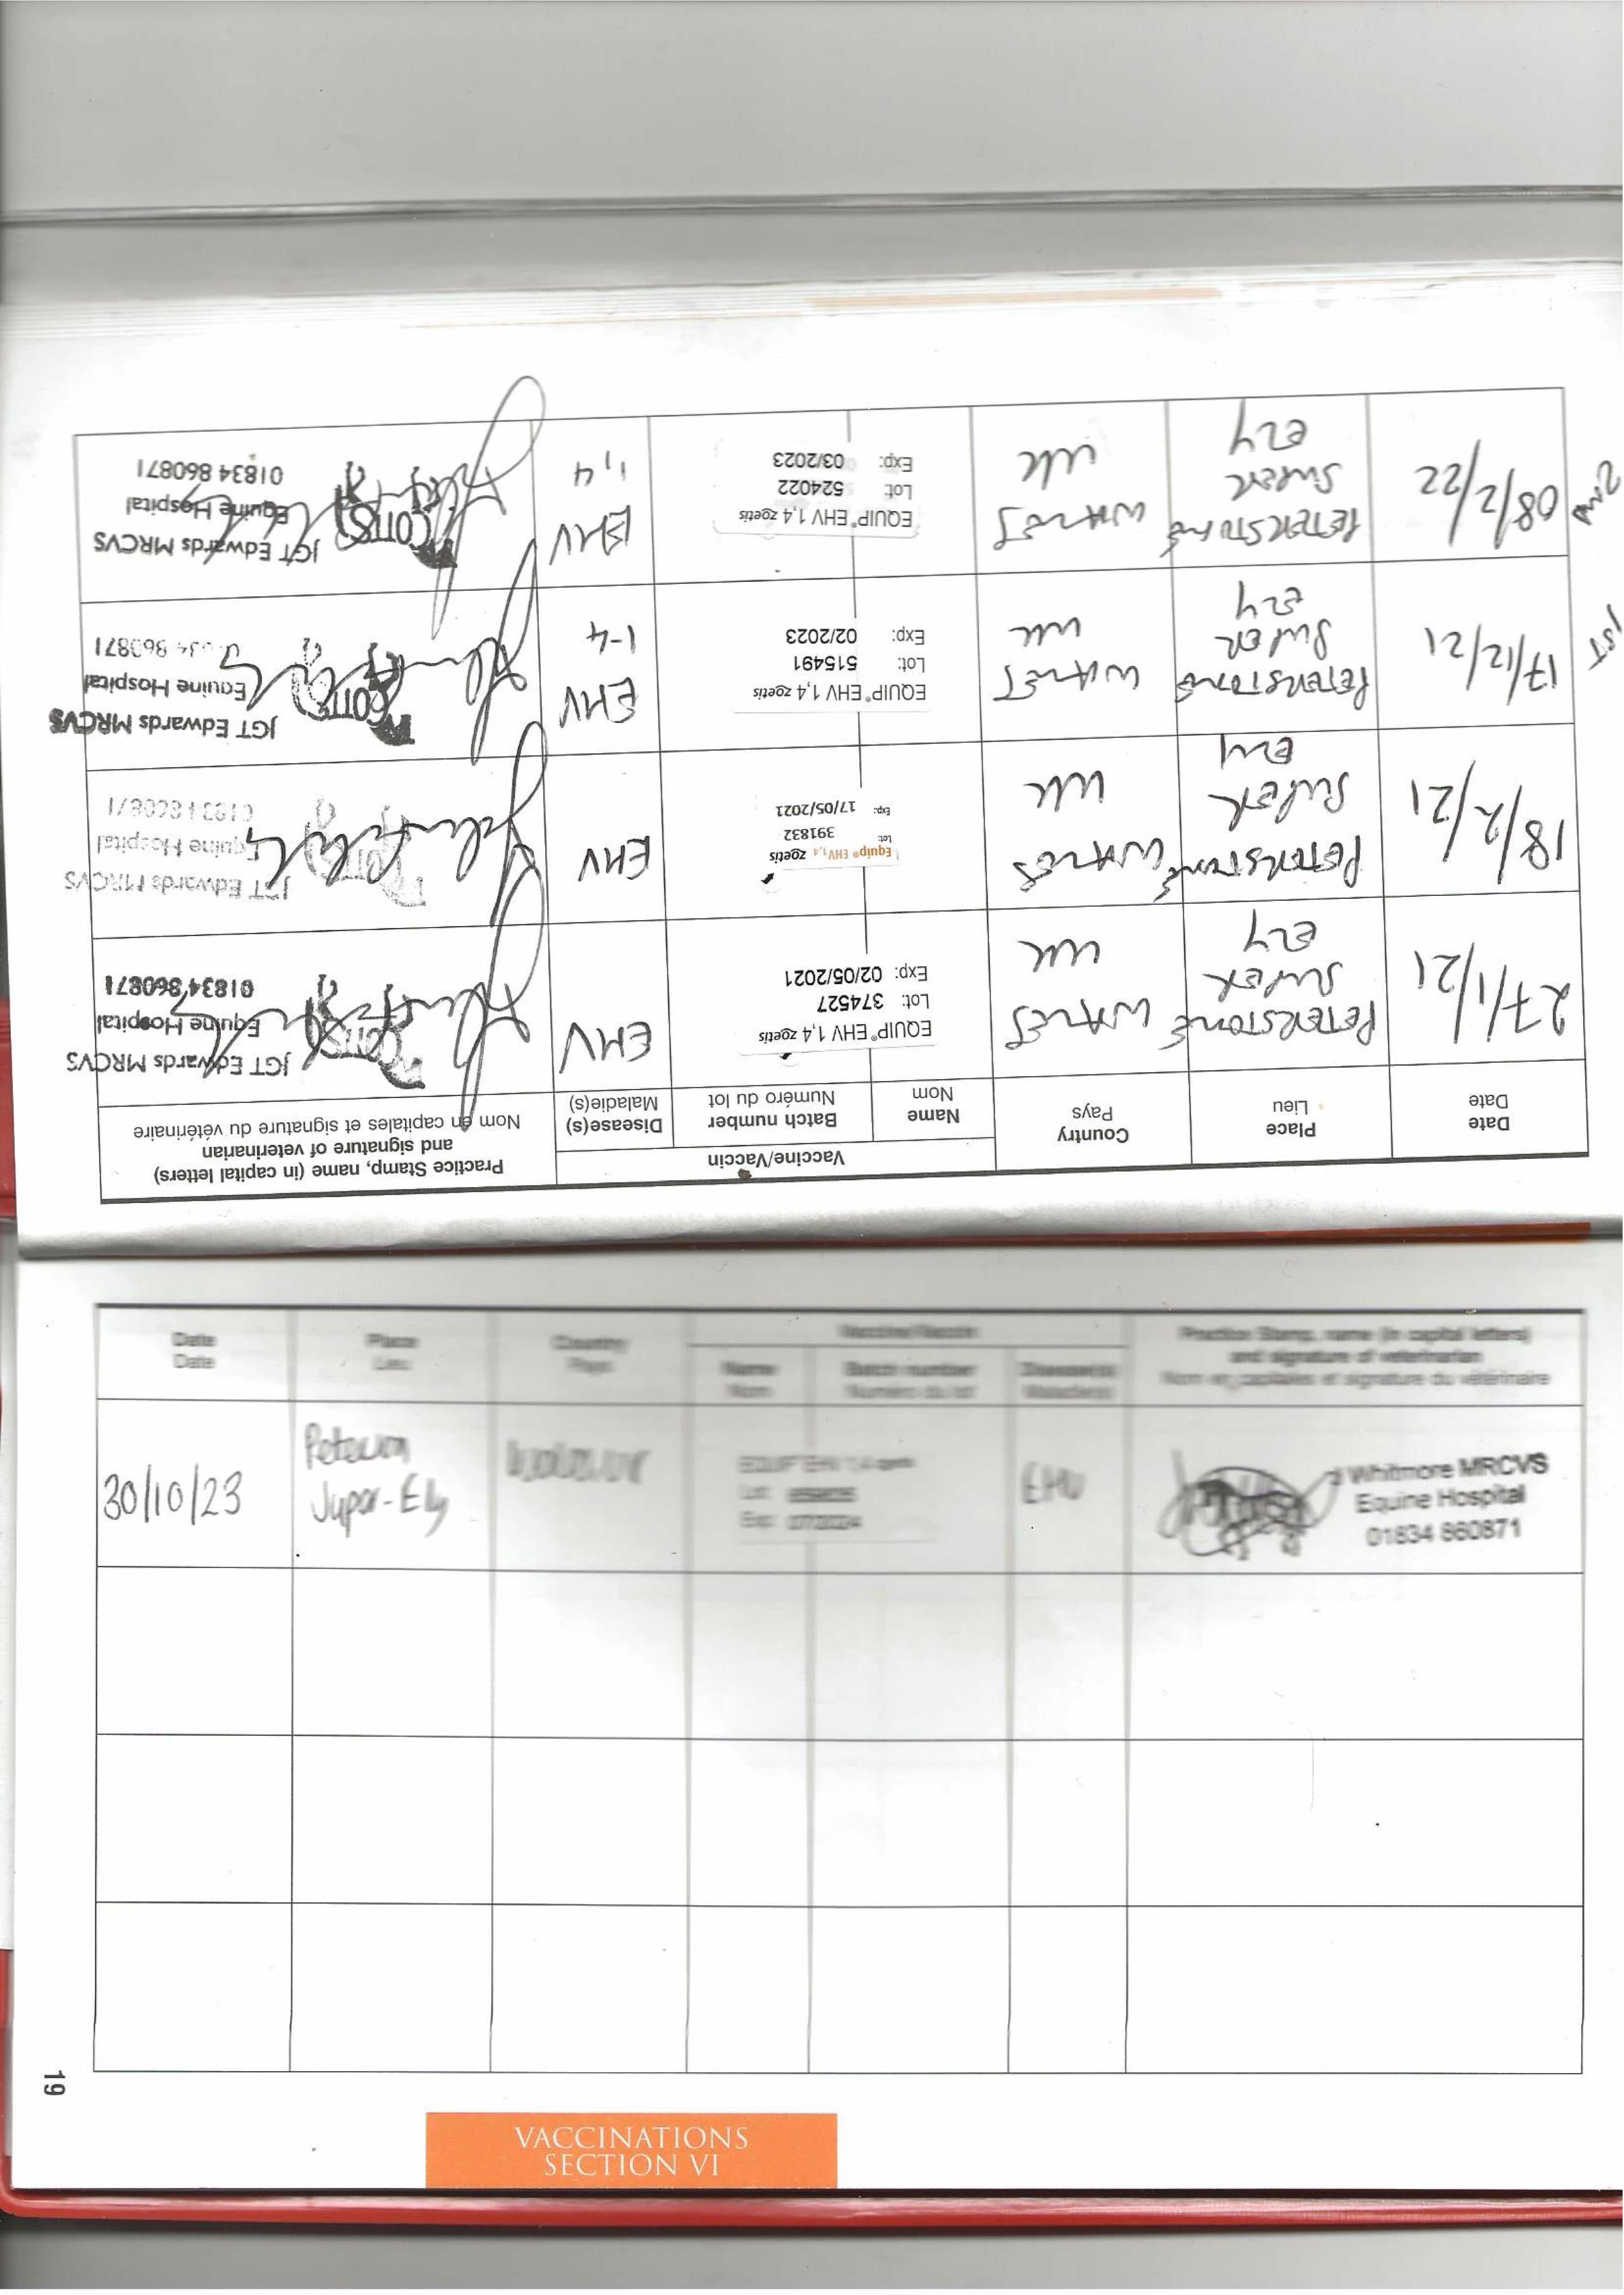 Practice Stamp, name (in capital letters)
and signature of veterinarian
Nom en capitales et signature du vétérinaire
Vaccine/Vaccin
Disease(s)
Maladie(s)
Batch number
Numéro du lot
Name
Nom
Country
Pays
Place
Lieu
Date
Date
27/1/21
PETERSTONE
SUPER
ELY
WALES
UK
EQUIP® EHV 1,4 zoetis
Lot: 374527
Exp: 02/05/2021
EHV
JGT Edwards MRCVS
Equine Hospital
01834 860871
18/2/21
PETERSTONE
SUPER
ELY
WALES
UK
Equip® EHV 1,4 zoetis
Lot: 391832
Exp: 17/05/2021
EHV
JGT Edwards MRCVS
Equine Hospital
01834 860871
1ST
17/12/21
PETERSTONE
SUPER
ELY
WALES
UK
EQUIP® EHV 1,4 zoetis
Lot: 515491
Exp: 02/2023
EHV
1-4
JGT Edwards MRCVS
Equine Hospital
01834 860871
2ND
08/2/22
PETERSTONE
SUPER
ELY
WALES
UK
EQUIP® EHV 1,4 zoetis
Lot: 524022
Exp: 03/2023
EHV
1,4
JGT Edwards MRCVS
Equine Hospital
01834 860871
Date
Date
Place
Lieu
Country
Pays
Vaccine/Vaccin
Name
Nom
Batch number
Numéro du lot
Disease(s)
Maladie(s)
Practice Stamp, name (in capital letters)
and signature of veterinarian
Nom en capitales et signature du vétérinaire
30/10/23
Super-Ely
EQUIP EHV 1,4 zoetis
Lot:
Exp: 07/2024
EHV
Whitmore MRCVS
Equine Hospital
01834 860871
19
VACCINATIONS
SECTION VI